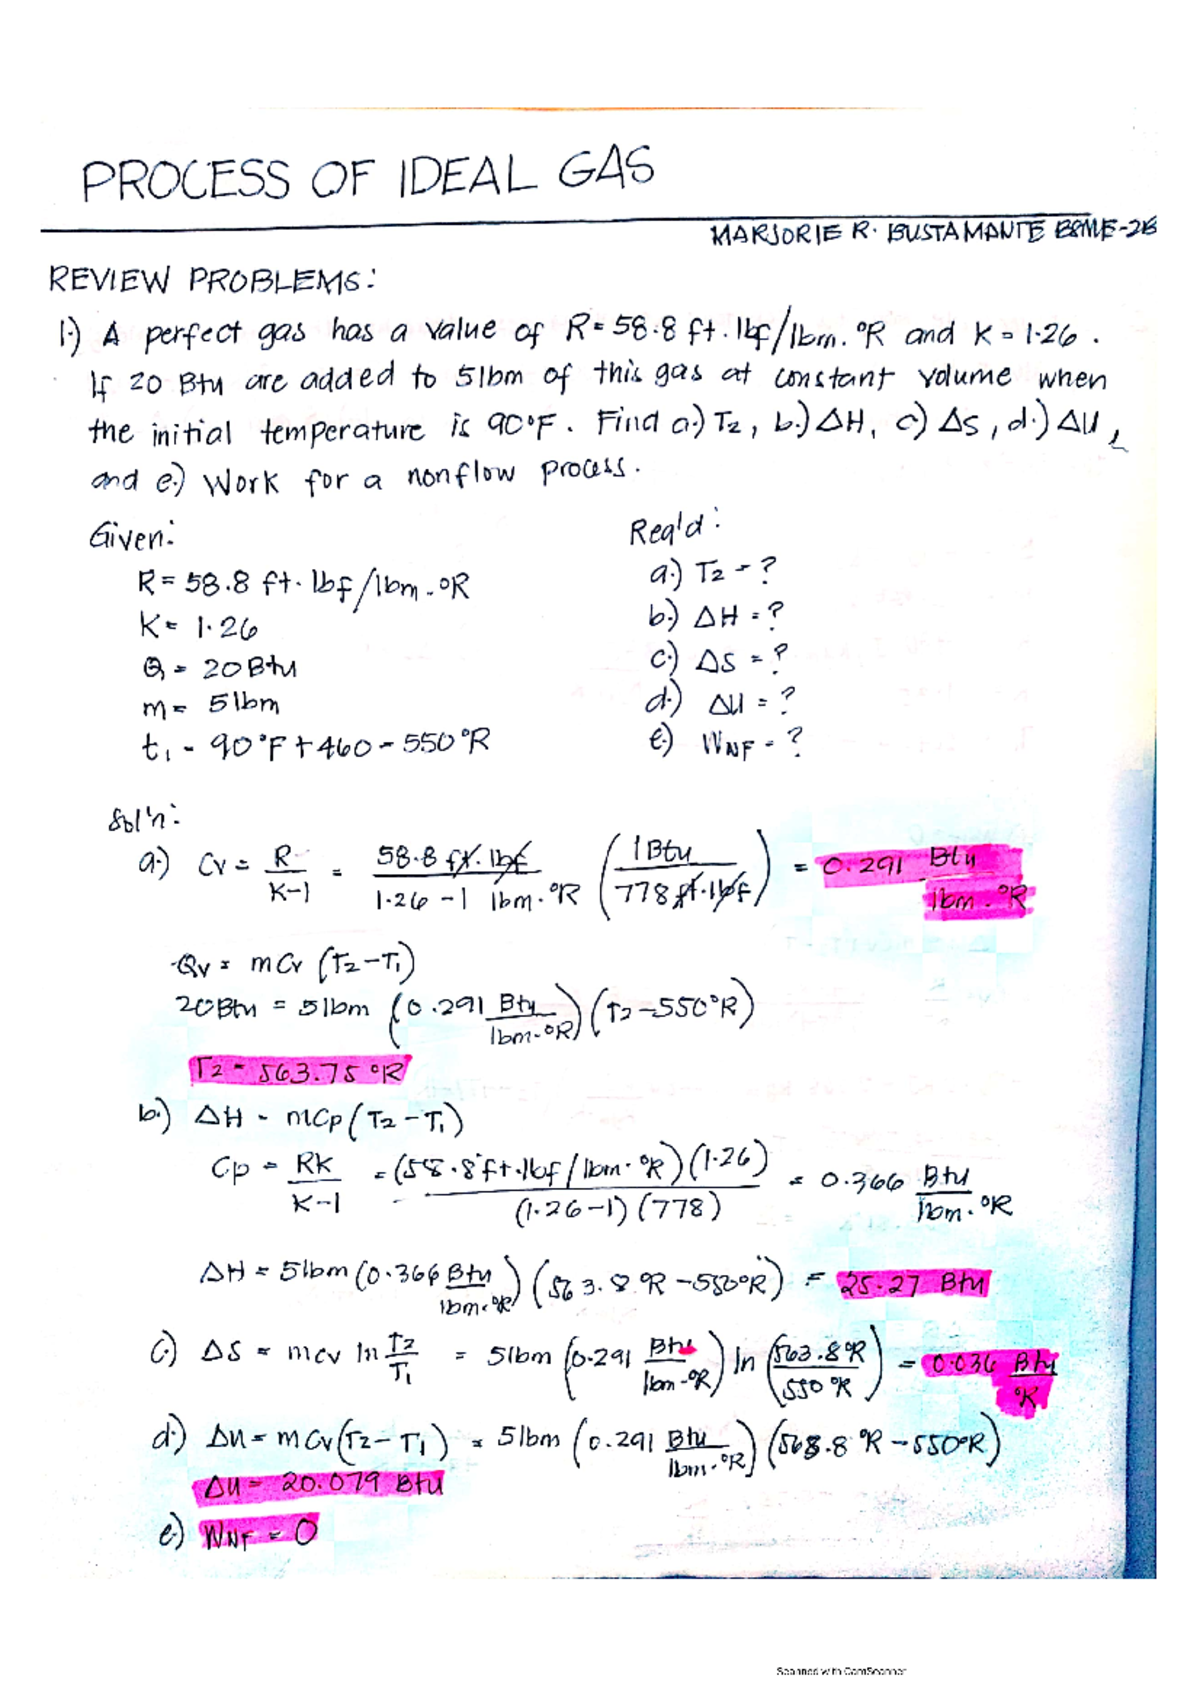 PROCESS OF IDEAL GAS
MARJORIE R. BUSTAMANTE BSME-2B
REVIEW PROBLEMS:
1.) A perfect gas has a value of R = 58.8 ft.lbf/lbm.°R and K = 1.26.
If 20 Btu are added to 5lbm of this gas at constant volume when
the initial temperature is 90°F. Find a.) T2, b.) ΔH, c.) ΔS, d.) ΔU,
and e.) Work for a nonflow process.
Given:
R = 58.8 ft.lbf/lbm.°R
K = 1.26
Q = 20 Btu
m = 5lbm
t1 = 90°F + 460 = 550°R
Req'd:
a.) T2 = ?
b.) ΔH = ?
c.) ΔS = ?
d.) ΔU = ?
e.) WNF = ?
Sol'n:
a.) Cv = R/K-1 = 58.8 ft.lbf/1.26-1 lbm.°R (1 Btu/778 ft.lbf) = 0.291 Btu/lbm.°R
Qv = mCv (T2-T1)
20Btu = 5lbm (0.291 Btu/lbm.°R) (T2-550°R)
T2 = 563.75 °R
b.) ΔH = mCp (T2-T1)
Cp = RK/K-1 = (58.8 ft.lbf/lbm.°R)(1.26)/(1.26-1)(778) = 0.366 Btu/lbm.°R
ΔH = 5lbm (0.366 Btu/lbm.°R) (563.8 °R - 550°R) = 25.27 Btu
c.) ΔS = mcv ln T2/T1 = 5lbm (0.291 Btu/lbm.°R) ln (563.8°R/550°R) = 0.036 Btu/°R
d.) Δu = mCv(T2-T1) = 5lbm (0.291 Btu/lbm.°R) (563.8 °R - 550°R)
Δu = 20.079 Btu
e.) WNF = 0
Scanned with CamScanner